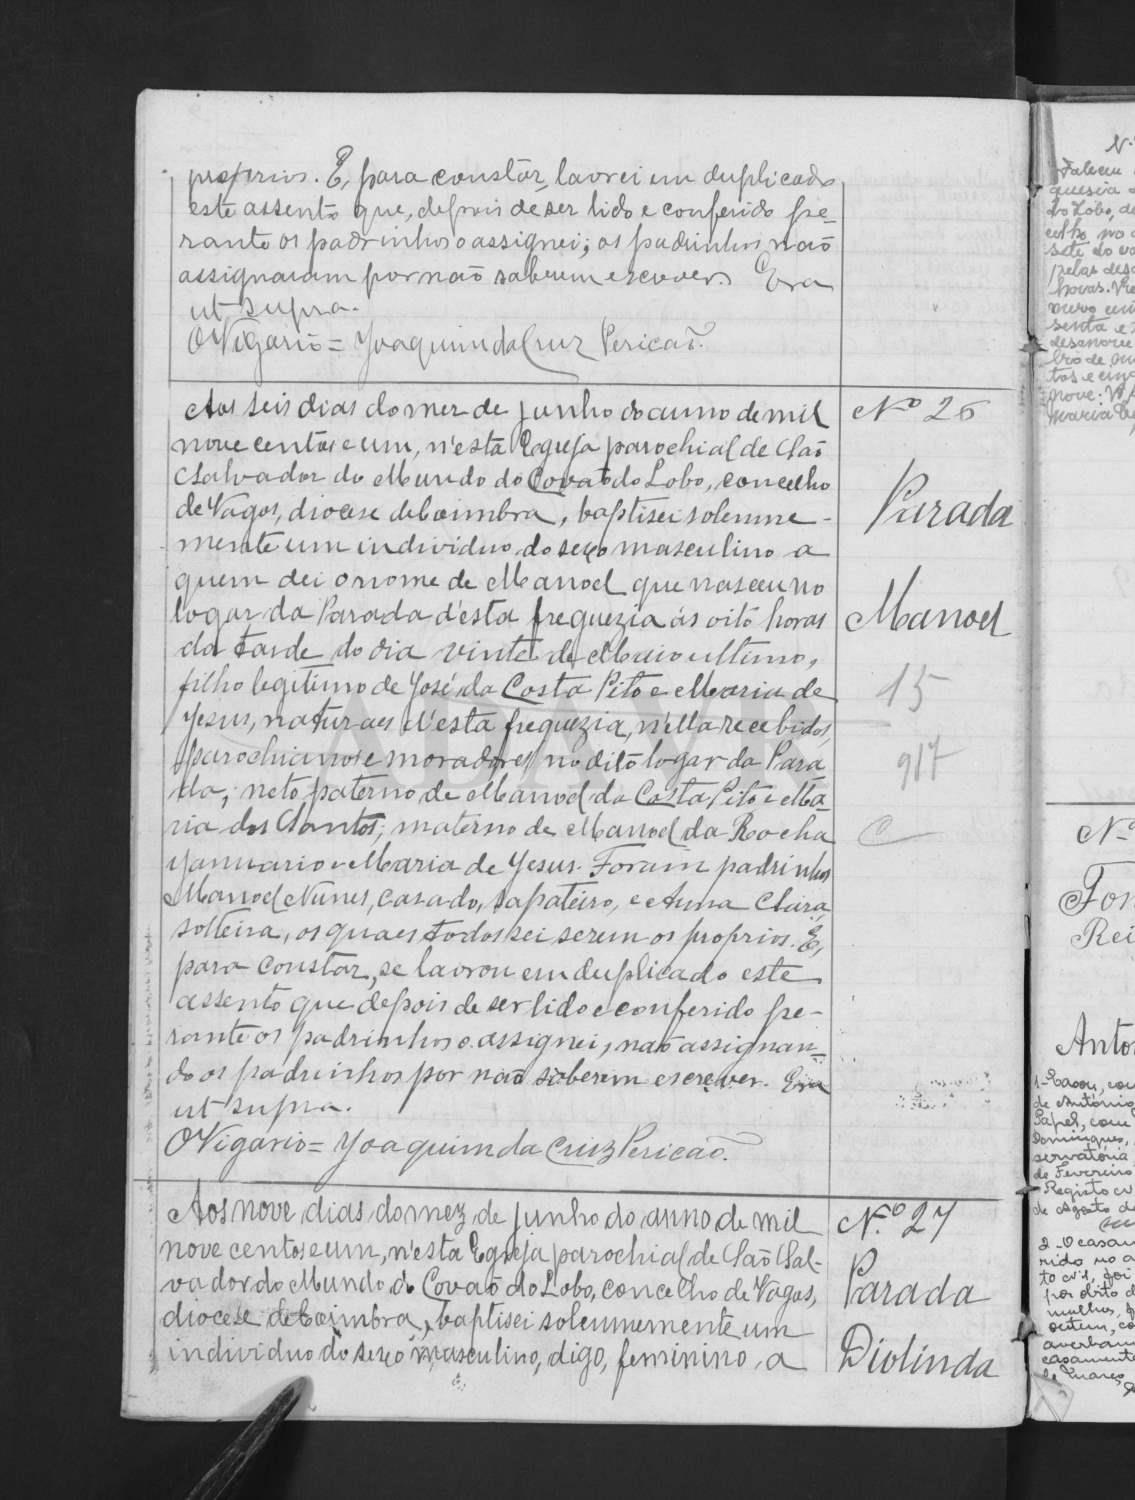 proprios. E, para constar, lavrei em duplicado
este assento que, depois de ser lido e conferido pe-
rante os padrinhos o assignei; os padrinhos não
assignaram por não saberem escrever. Era
ut supra.
O Vigario = Joaquim da Cruz Pericão.
Aos seis dias do mez de junho do anno de mil
nove centos e um, n'esta Egreja parochial de São
Salvador do Mundo do Covão do Lobo, concelho
de Vagos, diocese de Coimbra, baptisei solemne-
mente um individuo do sexo masculino a
quem dei o nome de Manoel que nasceu no
logar da Parada d'esta freguezia ás oito horas
da tarde do dia vinte de Maio ultimo,
filho legitimo de José da Costa Pito e Maria de
Jesus, naturaes d'esta freguezia, n'ella recebidos,
parochianos e moradores no dito logar da Para
da; neto paterno de Manoel da Costa Pito e Ma-
ria dos Santos; materno de Manoel da Rocha
Januario e Maria de Jesus. Foram padrinhos
Manoel Nunes, casado, sapateiro, e Anna Clara,
solteira, os quaes todos sei serem os proprios. E,
para constar, se lavrou em duplicado este
assento que depois de ser lido e conferido pe-
rante os padrinhos o assignei, não assignan-
do os padrinhos por não saberem escrever. Era
ut supra.
O Vigario = Joaquim da Cruz Pericão.
Nº 26
Parada
Manoel
15
917
C
Aos nove dias do mez de junho do anno de mil
nove centos e um, n'esta Egreja parochial de São Sal-
vador do Mundo do Covão do Lobo, concelho de Vagos,
diocese de Coimbra, baptisei solemnemente um
individuo do sexo masculino, digo, feminino, a
N.º 27
Parada
Diolinda
Faleceu
do Lobo, de
sete do
pelas
horas.
mero
senta e
bro de
tos e
nove.
Maria
Nº
Fon
Rei
Anto
1-Casou, com
de Antonio
Papel, com
Domingues,
servatória
de Fevereiro
Registo
de Agosto de
2-O casam
rido no
to civil, foi
por obito d
mulher,
ontem,
averbam
casamento
de Março